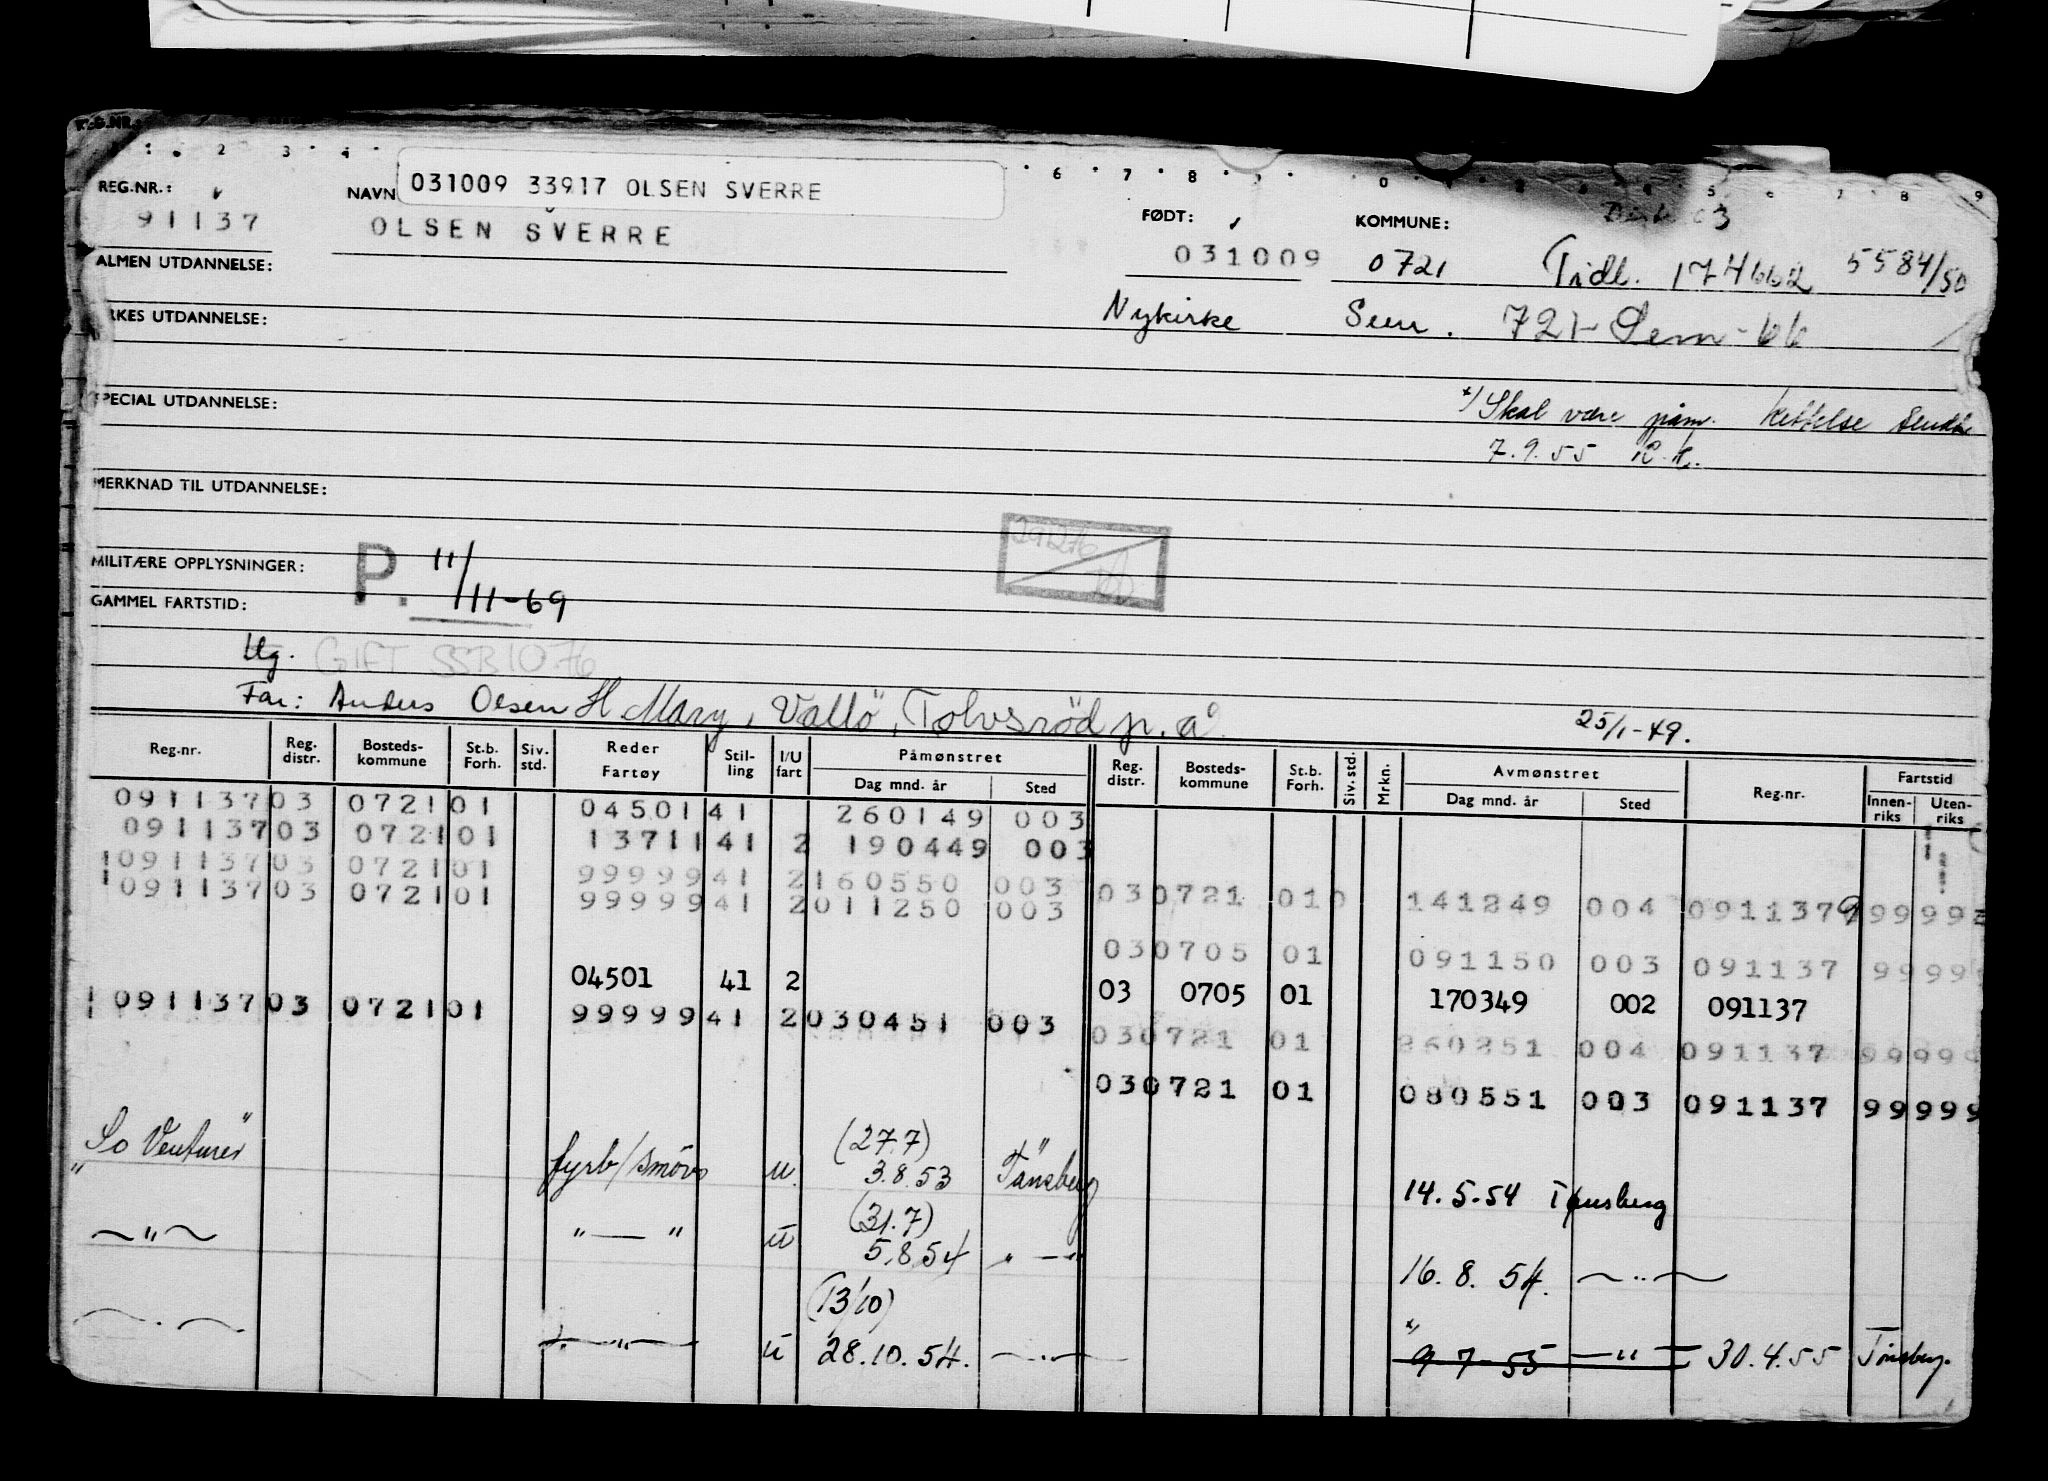 REG.NR.:
1 2 3 4 6 7 8
REG.NR.: 91137
NAVN 031009 33917 OLSEN SVERRE
OLSEN SVERRE
FØDT: 031009
KOMMUNE: 0721
03
Tidl. 174662 5584/50
ALMEN UTDANNELSE:
Nykirke Sem. 721-Sem-66
RKES UTDANNELSE:
x) Skal være påm.
SPECIAL UTDANNELSE:
7.9.55 R.K.
MERKNAD TIL UTDANNELSE:
291276
MILITÆRE OPPLYSNINGER: P. 11/11-69
GAMMEL FARTSTID:
Ug. GIFT SSB 10 76
Far: Anders Olsen H Mary, Vallö, Tolvsröd p.å.
25/1-49.
Reg.nr. Reg. distr. Bosteds-kommune St.b. Forh. Siv. std. Reder Fartøy Stil-ling I/U fart Påmønstret Dag mnd. år Sted Reg. distr. Bosteds-kommune St.b. Forh. Siv. std. Mrkn. Avmønstret Dag mnd. år Sted Reg.nr. Fartstid Innen-riks Uten-riks
091137 03 0721 01 04501 41 260149 003
091137 03 0721 01 13711 41 2 190449 003
091137 03 0721 01 99999 41 2 160550 003
091137 03 0721 01 99999 41 2 011250 003
03 0721 010 141249 004 091137 9 9999
03 0705 01 091150 003 091137 9999
04501 41 2 03 0705 01 170349 002 091137
091137 03 0721 01 99999 41 2 030451 003
03 0721 01 260251 004 091137 99999
03 0721 01 080551 003 091137 99999
"So Venturer" fyrb/smører u. (27.7) 3.8.53 Tönsberg
14.5.54 Tønsberg
—"— "—" u (31.7) 5.8.54 "—"
16.8.54. —"—
—"— —"— u (13/10) 28.10.54. —"—
x) 9 7-55 —"— 30.4.55 Tönsberg.